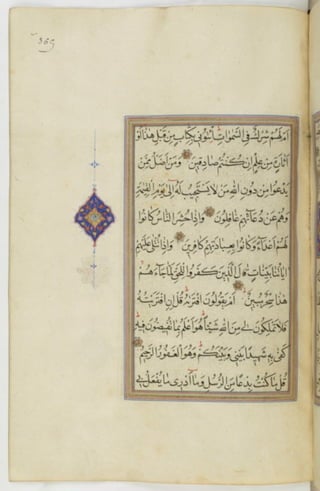 أَمْ لَهُمْ شِرْكٌ فِي السَّمَوَاتِ ائْتُونِي بِكِتَابٍ مِنْ قَبْلِ هَذَا أَوْ
أَثَارَةٍ مِنْ عِلْمٍ إِنْ كُنْتُمْ صَادِقِينَ وَمَنْ أَضَلُّ مِمَّنْ
يَدْعُوا مِنْ دُونِ اللَّهِ مَنْ لَا يَسْتَجِيبُ لَهُ إِلَى يَوْمِ الْقِيمَةِ
وَهُمْ عَنْ دُعَائِهِمْ غَافِلُونَ وَإِذَا حُشِرَ النَّاسُ كَانُوا
لَهُمْ أَعْدَاءً وَكَانُوا بِعِبَادَتِهِمْ كَافِرِينَ وَإِذَا تُتْلَى عَلَيْهِمْ
آيَاتُنَا بَيِّنَاتٍ قَالَ الَّذِينَ كَفَرُوا لِلْحَقِّ لَمَّا جَاءَهُمْ
هَذَا سِحْرٌ مُبِينٌ أَمْ يَقُولُونَ افْتَرَيهُ قُلْ إِنِ افْتَرَيْتُهُ
فَلَا تَمْلِكُونَ لِي مِنَ اللَّهِ شَيْئًا هُوَ أَعْلَمُ بِمَا تُفِيضُونَ فِيهِ
كَفَى بِهِ شَهِيدًا بَيْنِي وَبَيْنَكُمْ وَهُوَ الْغَفُورُ الرَّحِيمُ
قُلْ مَا كُنْتُ بِدْعًا مِنَ الرُّسُلِ وَمَا أَدْرِي مَا يُفْعَلُ بِي